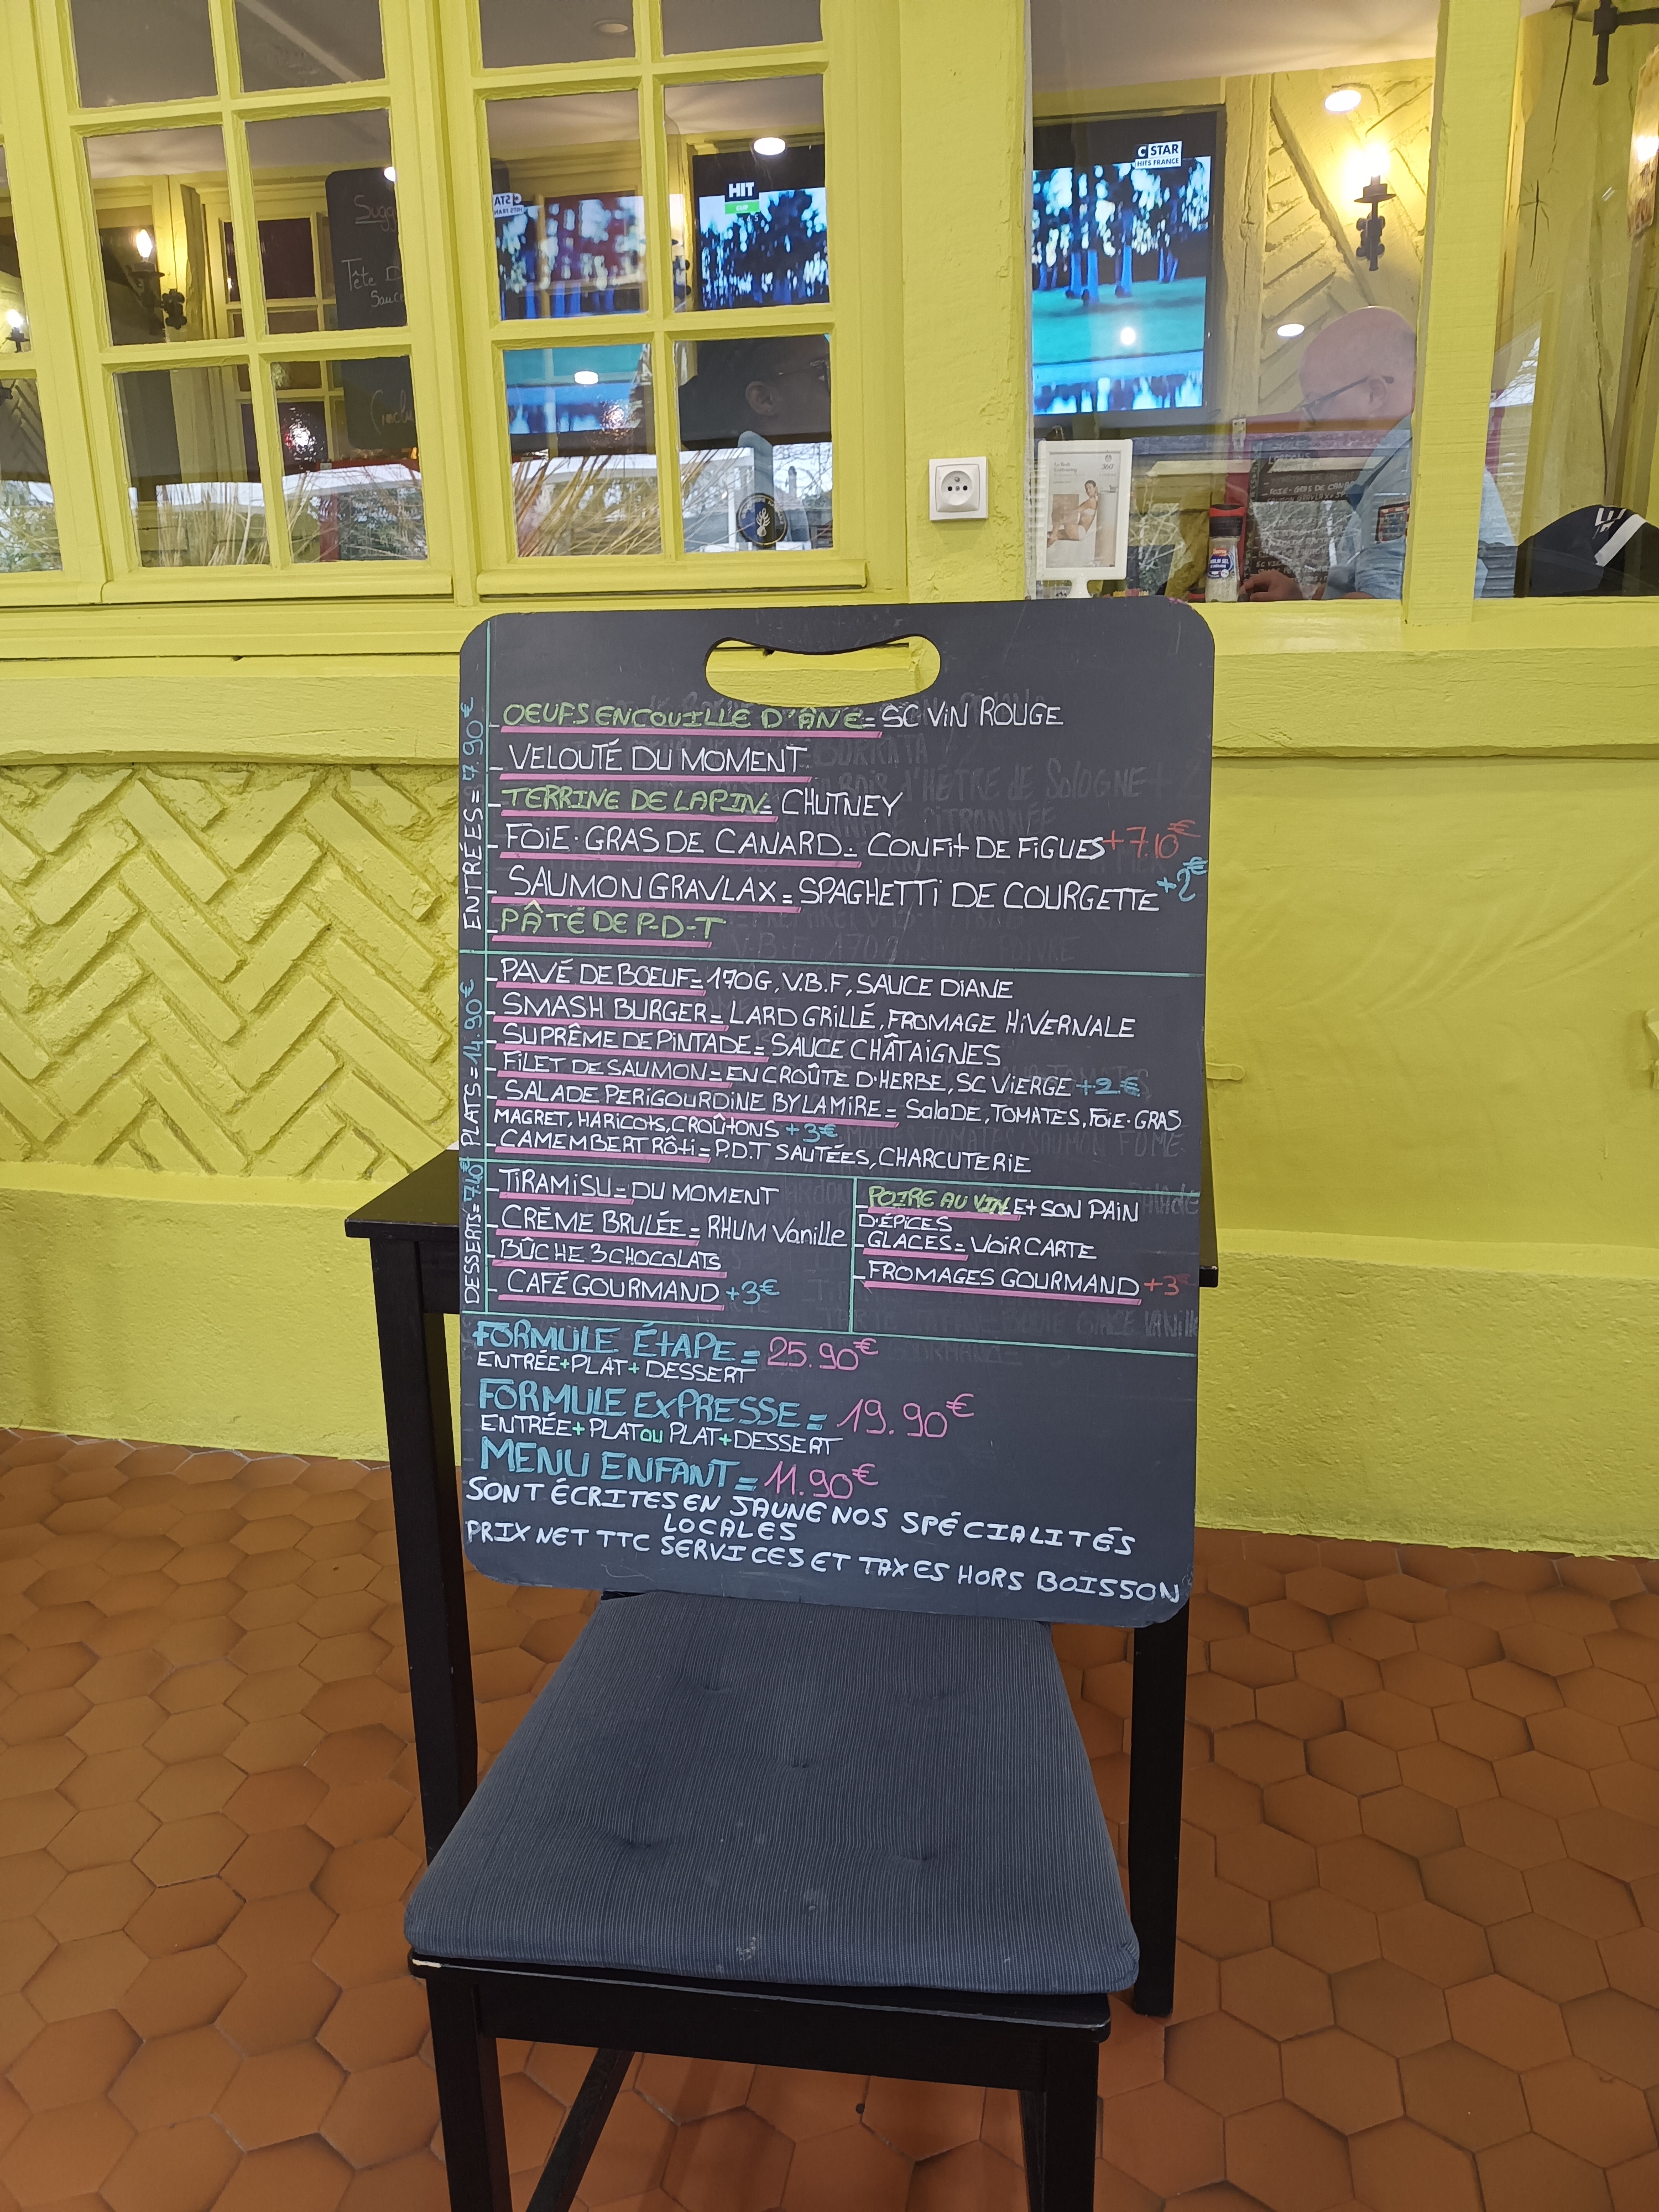 C STAR
HITS FRANCE
HIT
Sugg
Tête D
Sauce
360°
ENTRÉES = 7.90€
OEUFS EN COUILLE D'ÂNE = SC ViN ROUGE
VELOUTÉ DU MOMENT
TERRINE DE LAPIN = CHUTNEY
FOIE-GRAS DE CANARD = CONFit DE FiGUES +7.10€
SAUMON GRAVLAX = SPAGHETTi DE COURGETTE +2€
PÂTÉ DE P-D-T
PLATS = 14.90€
PAVÉ DE BOEUF = 170G, V.B.F, SAUCE DiANE
SMASH BURGER = LARD GRiLLÉ, FROMAGE HiVERNALE
SUPRÊME DE PiNTADE = SAUCE CHÂTAiGNES
FiLET DE SAUMON = EN CROÛTE D'HERBE, SC ViERGE +2€
SALADE PERiGOURDiNE BY LAMIRE = SalaDE, TOMATES, FOiE-GRAS
MAGRET, HARiCOtS, CROÛtONS +3€
CAMEMBERT RÔti = P.D.T SAUTÉES, CHARCUTERiE
DESSERTS = 7.40€
TiRAMiSU = DU MOMENT
CRÈME BRULÉE = RHUM Vanille
BÛCHE 3 CHOCOLATS
CAFÉ GOURMAND +3€
POIRE AU VIN Et SON PAiN
D'ÉPiCES
GLACES = VOiR CARTE
FROMAGES GOURMAND +3
FORMULE ÉtAPE = 25.90€
ENTRÉE + PLAT + DESSERT
FORMULE EXPRESSE = 19.90€
ENTRÉE + PLAT OU PLAT + DESSERT
MENU ENFANT = 11.90€
SONT ÉCRITES EN JAUNE NOS SPÉCIALITÉS
LOCALES
PRIX NET TTC SERVICES ET TAXES HORS BOISSON